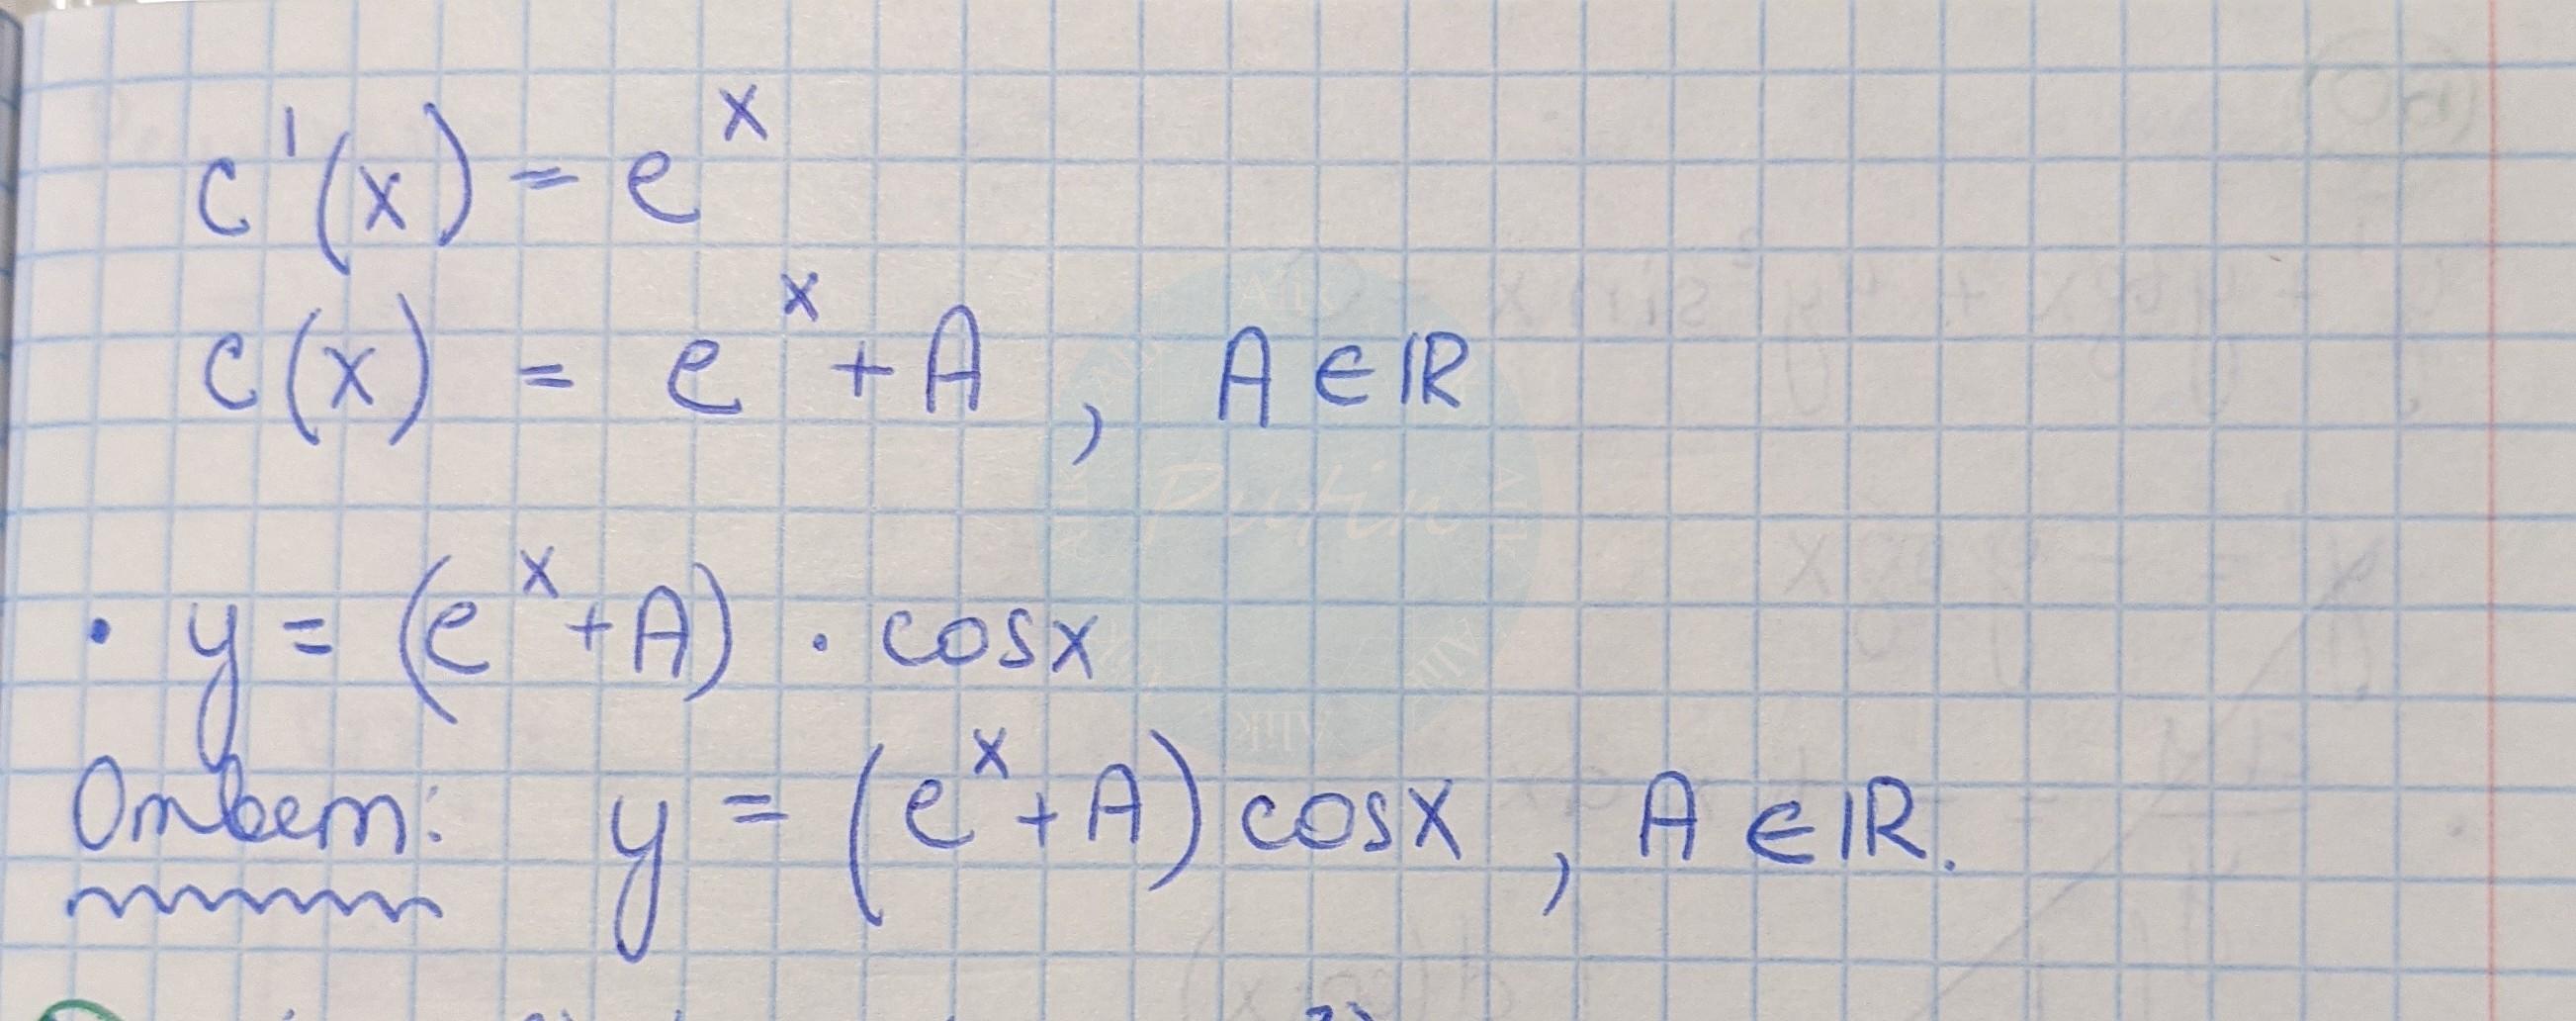 c'(x) = e^x
c(x) = e^x + A , A ∈ ℝ
• y = (e^x + A) · cosx
Ответ: y = (e^x + A) cosx , A ∈ ℝ.
Putin